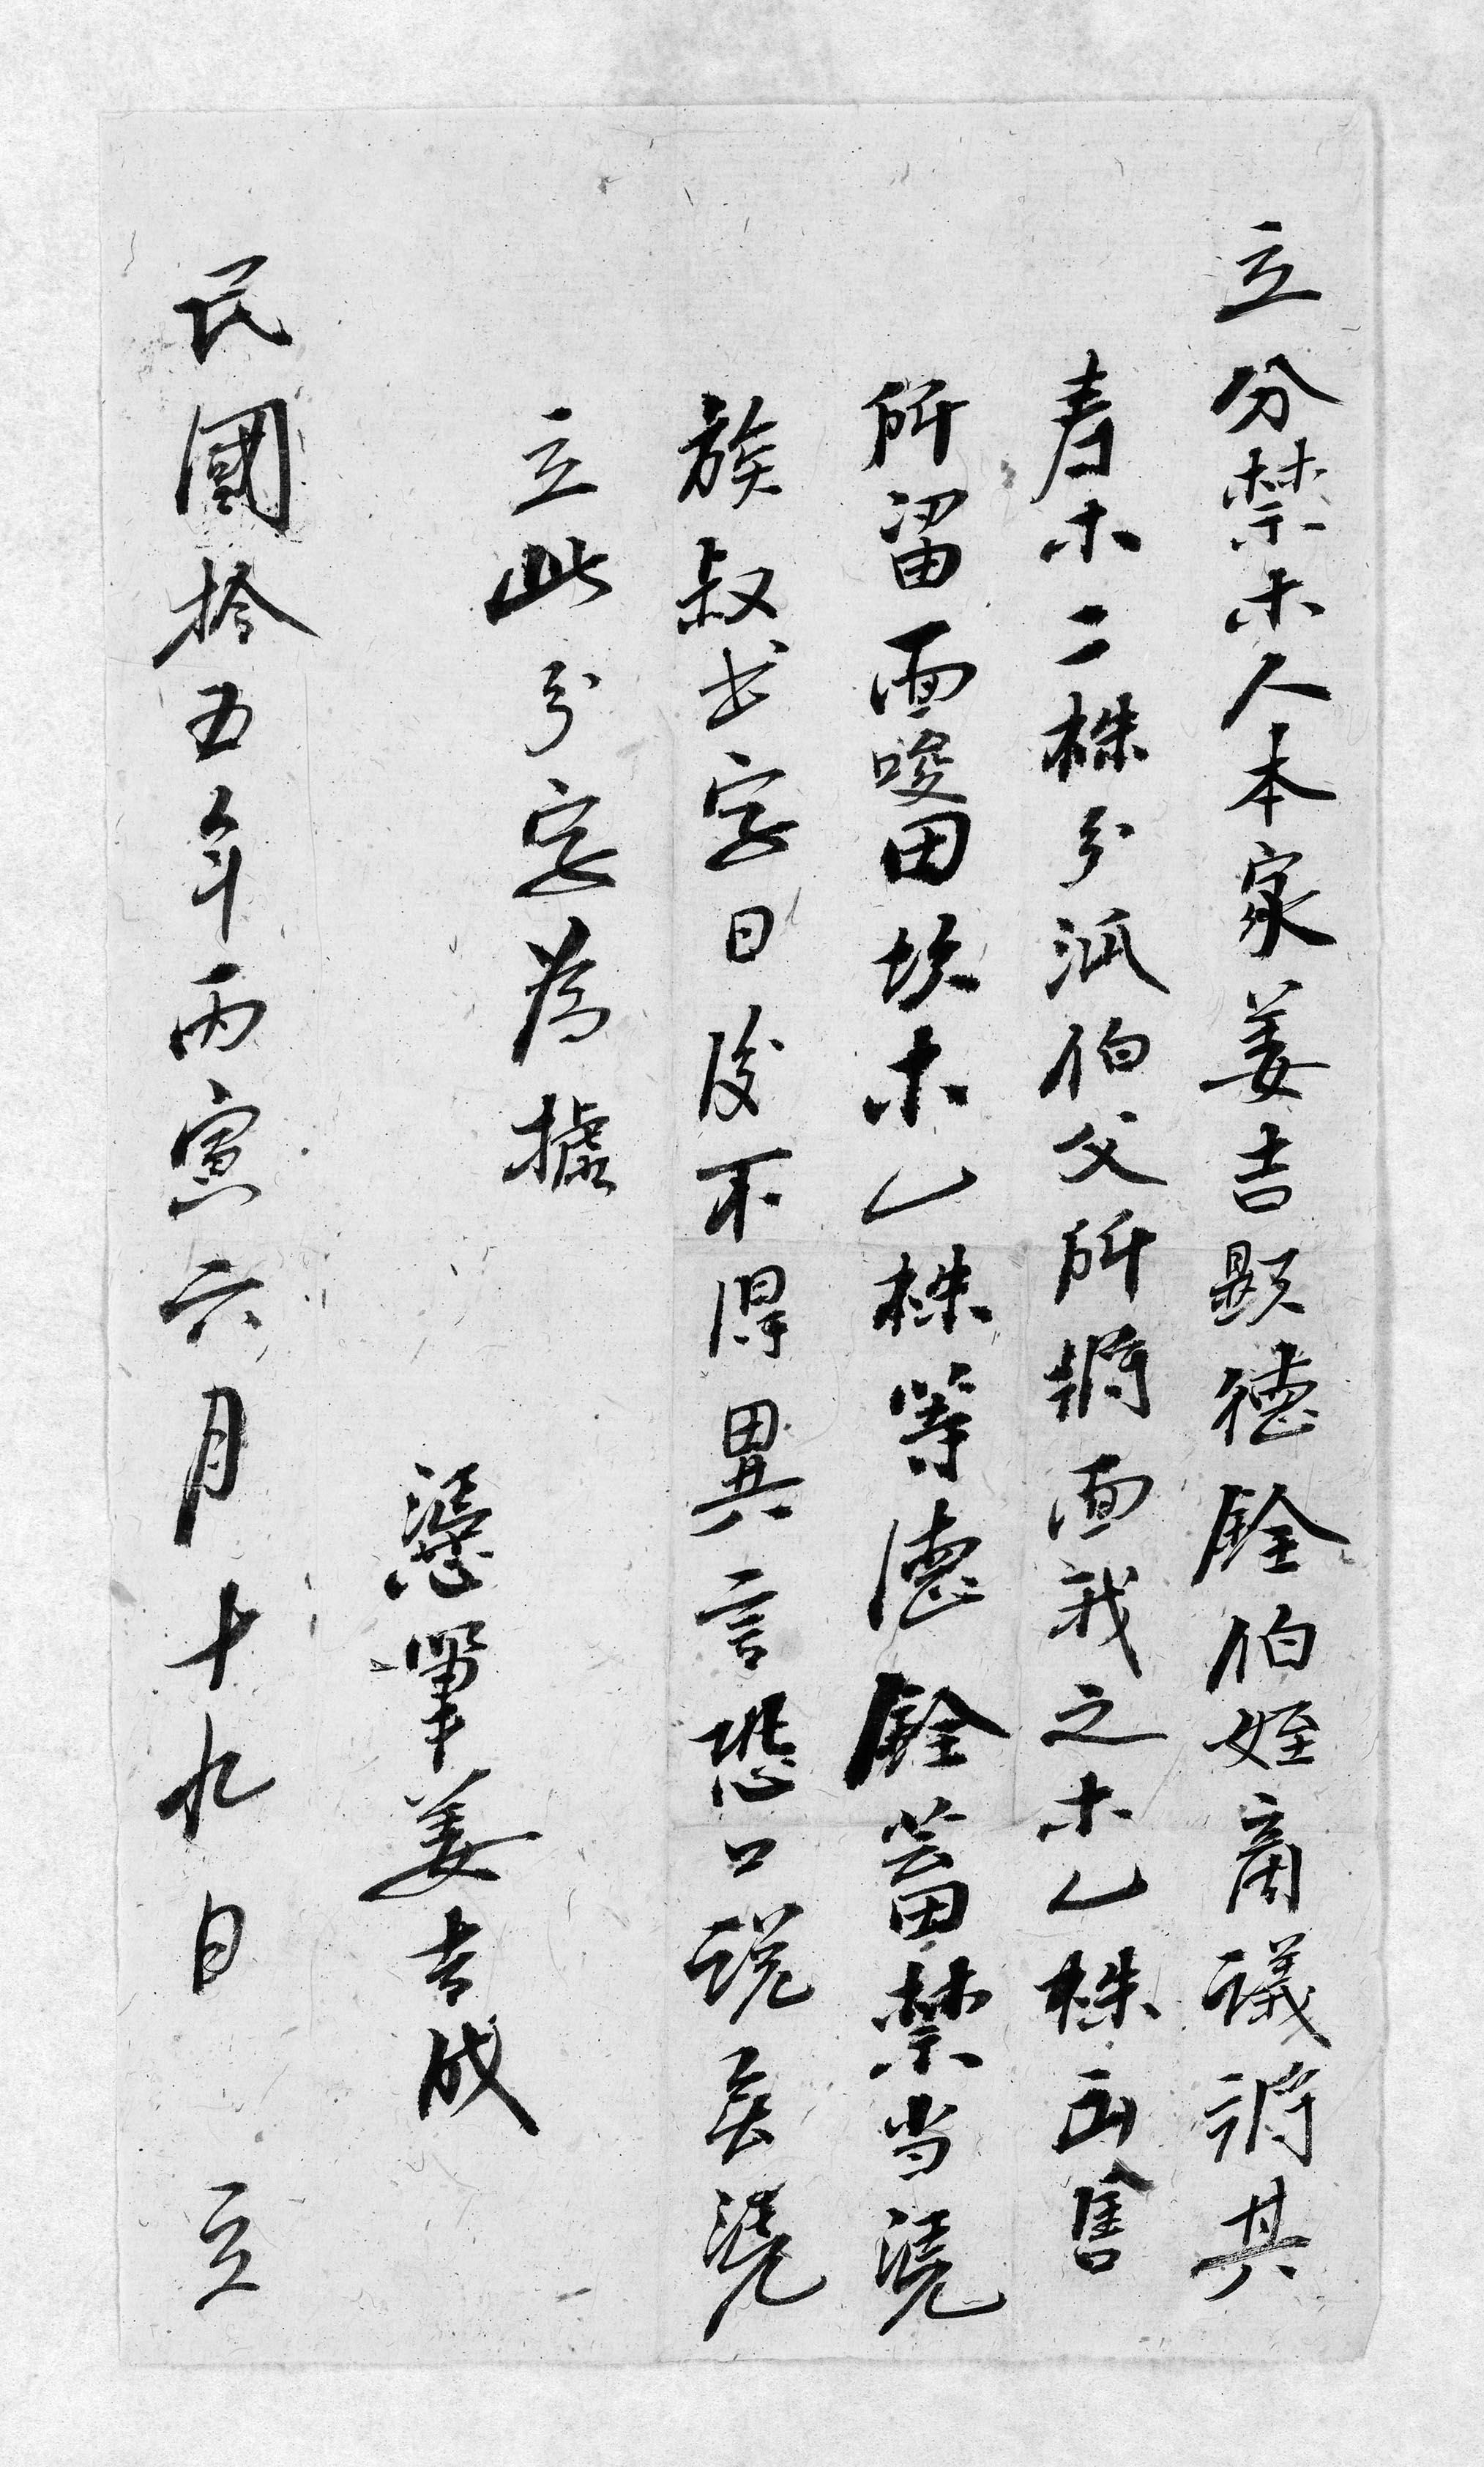 立分禁木人本家姜吉顕德銓伯姪商議將其
春木二株分派伯父所將面我之木乙株出售
所留面唆田坎木乙株等德銓蓄禁当凴
族叔书字日後不得異言恐口説無凴
立此分字為據
凴筆姜吉成
民國拾五年丙寅六月十九日立